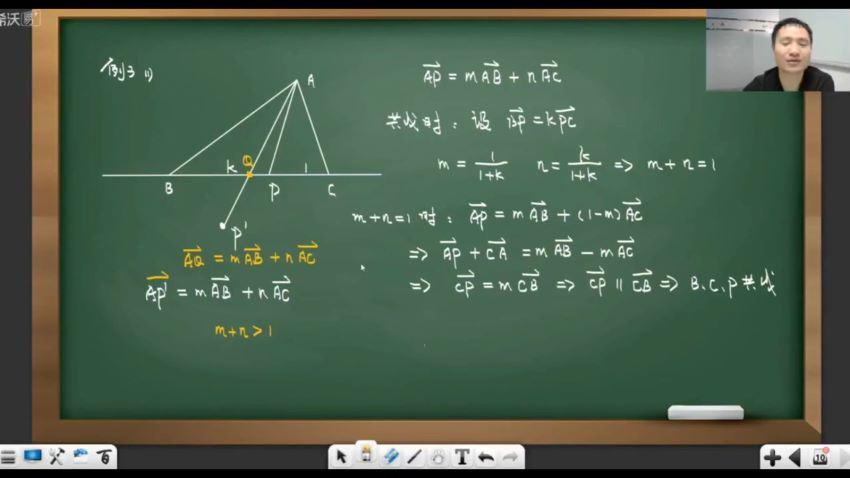 希沃
例3 (1)
A
k Q 1
B P C
P'
\vec{AQ} = m\vec{AB} + n\vec{AC}
\vec{AP'} = m\vec{AB} + n\vec{AC}
m+n > 1
\vec{AP} = m\vec{AB} + n\vec{AC}
共线时: 设 \vec{BP} = k\vec{PC}
m = \frac{1}{1+k} n = \frac{k}{1+k} => m+n = 1
m+n=1 时: \vec{AP} = m\vec{AB} + (1-m)\vec{AC}
=> \vec{AP} + \vec{CA} = m\vec{AB} - m\vec{AC}
=> \vec{CP} = m\vec{CB} => \vec{CP} ∥ \vec{CB} => B、C、P共线
T
10